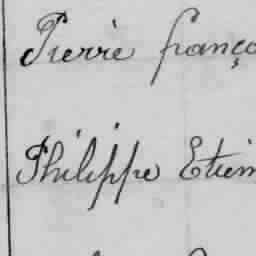 Pierre franço
Philippe Etien